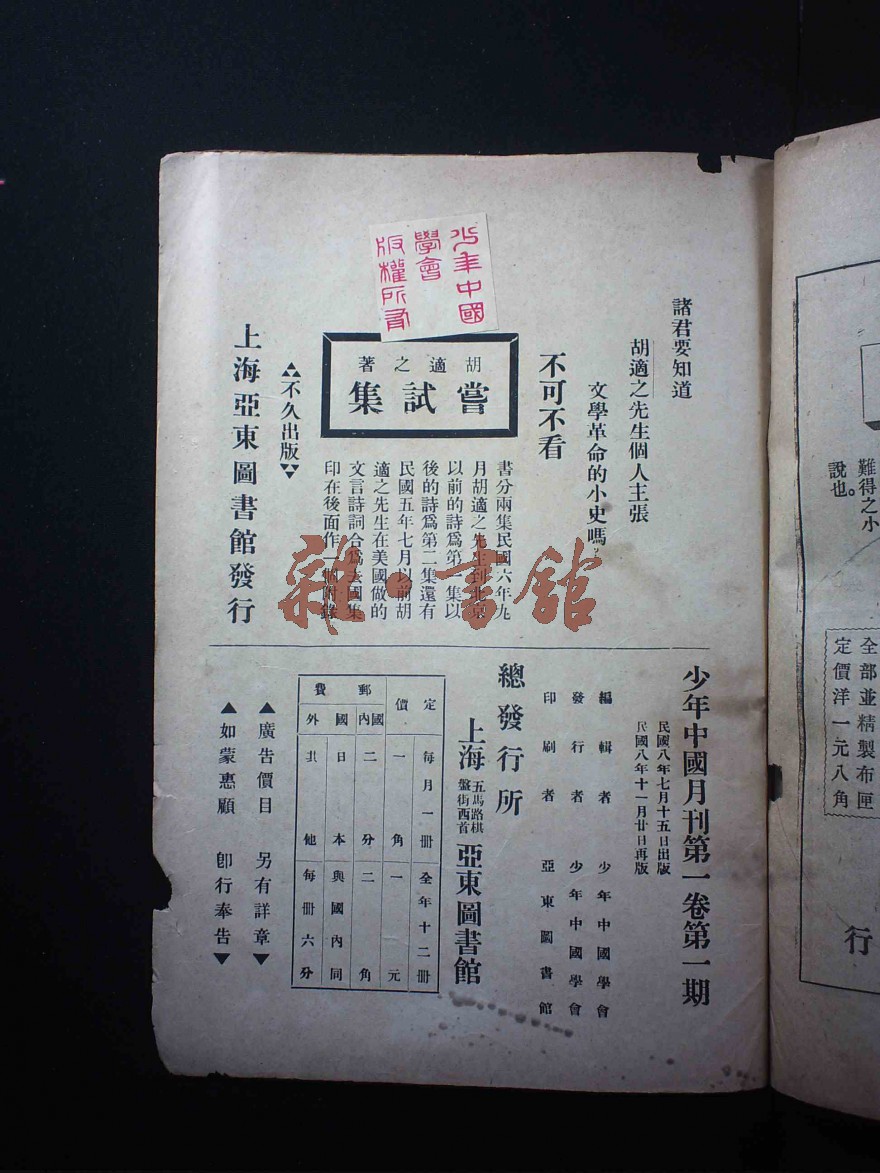 諸君要知道
胡適之先生個人主張
文學革命的小史嗎?
不可不看
少年中國
學會
版權所有
胡適之著
嘗試集
書分兩集民國六年九
月胡適之先生到北京
以前的詩爲第一集以
後的詩爲第二集還有
民國五年七月以前胡
適之先生在美國做的
文言詩詞合爲去國集
印在後面作一個附錄
▲▲不久出版▼▼
上海亞東圖書館發行
少年中國月刊第一卷第一期
民國八年七月十五日出版
民國八年十一月廿日再版
編輯者 少年中國學會
發行者 少年中國學會
印刷者 亞東圖書館
總發行所
上海
五馬路棋
盤街西首
亞東圖書館
定 每月一冊 全年十二冊
價 一角 一元
郵費
國內 二分 二角
國外
日本 與國內同
其他 每冊六分
▲廣告價目 另有詳章▼
▲如蒙惠顧 卽行奉告▼
雜·書館
難得之小
說也。
全部並精製布匣
定價洋一元八角
行